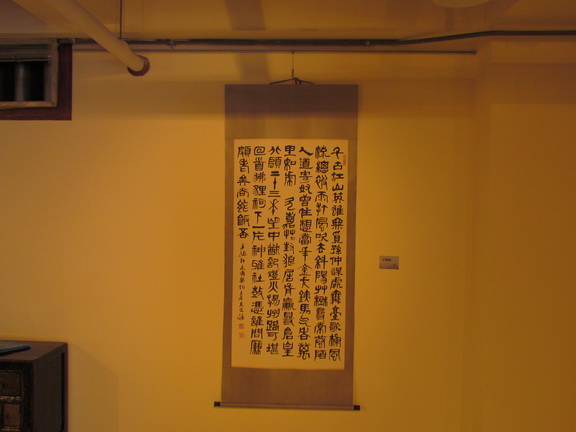 千古江山英雄無覓孫仲謀處舞臺歌榭風
流總被雨打風吹去斜陽草樹尋常巷陌
人道寄奴曾住想當年金戈鐵馬氣吞萬
里如虎 元嘉草草封狼居胥贏得倉皇
北顧四十三年望中猶記烽火揚州路可堪
回首佛貍祠下一片神鴉社鼓憑誰問廉
頗老矣尚能飯否